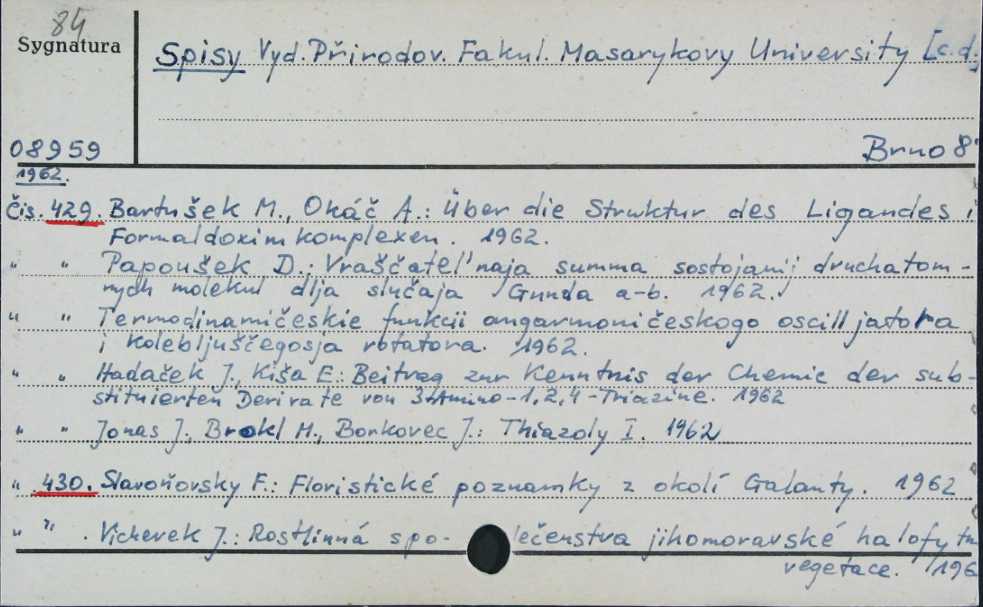 84
Sygnatura
Spisy Vyd. Přirodov. Fakul. Masarykovy University [c.d.
08959
Brno 8
1962.
Čis. 429. Bartušek M., Okáč A.: Über die Struktur des Ligandes i
Formaldoxim komplexen. 1962.
" " Papoušek D.: Vraščatel'naja summa sostojanij dvuchatom-
nych molekul dlja slučaja Gunda a-b. 1962.
" " Termodinamičeskie funkcii angarmoničeskogo oscilljatora
i kolebljuščegosja rotatora. 1962.
" " Hadaček J., Kiša E.: Beitrag zur Kenntnis der Chemie der sub-
stituierten Derivate von 3-Amino-1,2,4-Triazine. 1962
" " Jonas J., Brokl M., Borkovec J.: Thiazoly I. 1962
" 430. Slavoňovsky F.: Floristické poznamky z okolí Galanty. 1962
" " . Vicherek J.: Rostlinná spo- lečenstva jihomoravské halofytn
vegetace. 196